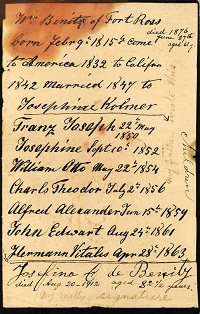 Wm Benitz of Fort Ross
died 1876
June 27th
aged 61 y
born Febrg 18 15th Come
to America 1832 to Califor
1842 Married 1847 to
Josephine Kolmer
Franz Joseph 22d May
1850
Josephine Sept 10th 1852
William Otto May 22d 1854
Charls Theodor July 2d 1856
Alfred Alexander Jun 15th 1859
John Edwart Aug 24th 1861
Hermann Vitales Apr 28th 1863
Children
Josefina C. de Benitz
died Aug 20-1912 aged 82 1/2 years.
my mother's signature